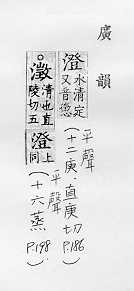 廣韻
澄 水清定
又音懲
平聲
(十二庚,直庚切 P.186)
○澂 清也直
陵切五 澄 上
同
平聲
(十六蒸 P.198)